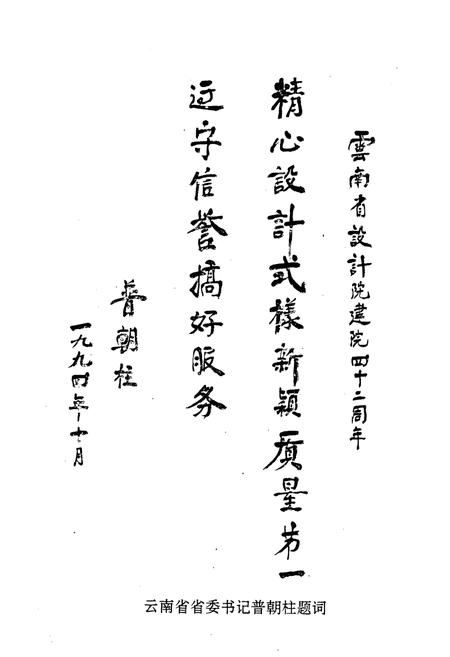 雲南省設計院建院四十二周年
精心設計式樣新穎质量第一
迂守信誉搞好服务
普朝柱
一九九四年十月
云南省省委书记普朝柱题词